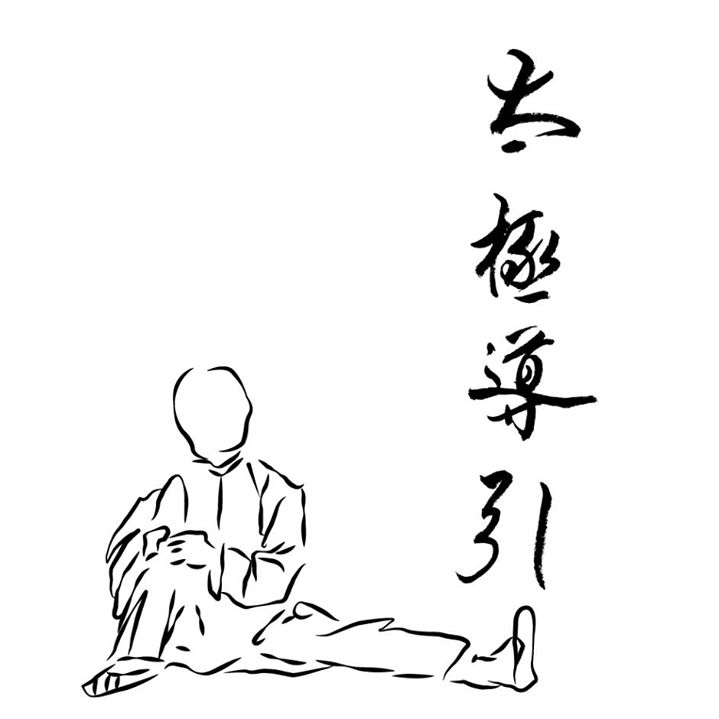 太極導引